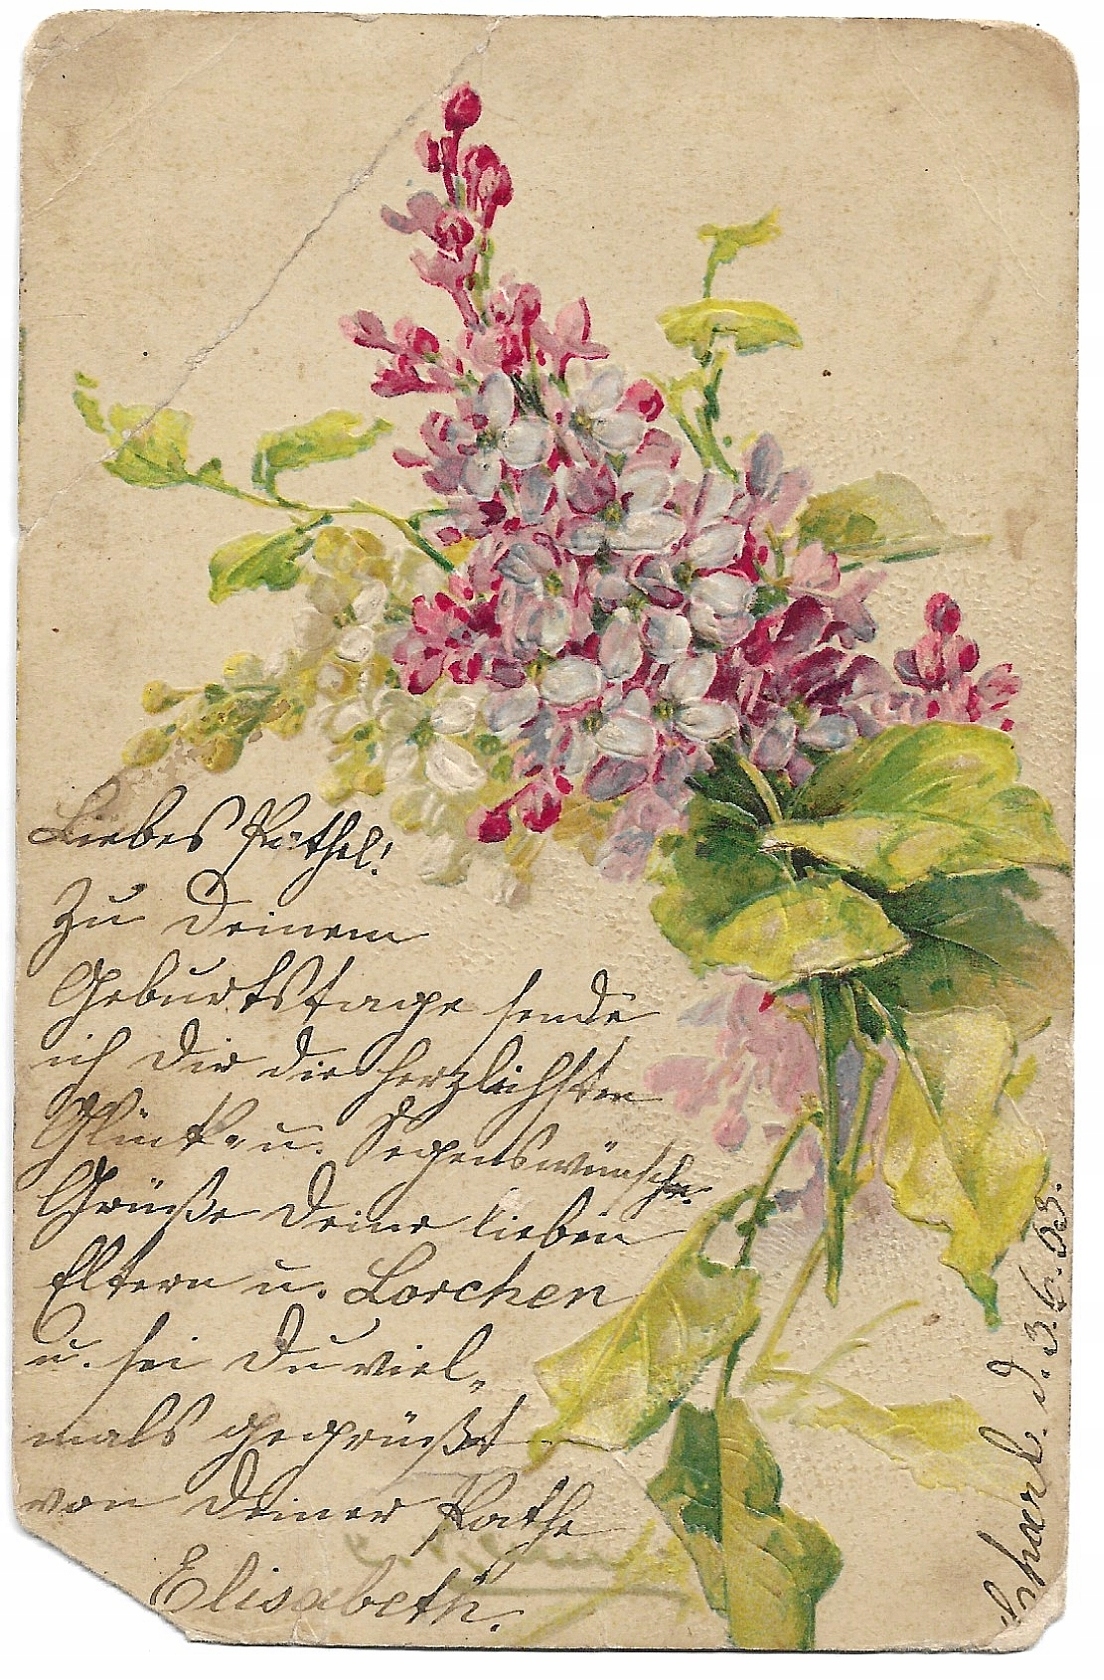 Liebes Pathel!
Zu Deinem
Geburtstage sende
ich Dir die herzlichsten
Glück- u. Segenswünsche.
Grüße Deine lieben
Eltern u. Lorchen
u. sei Du viel-
mals gegrüßt
von Deiner Pathe
Elisabeth.
d. 3. 6. 03.